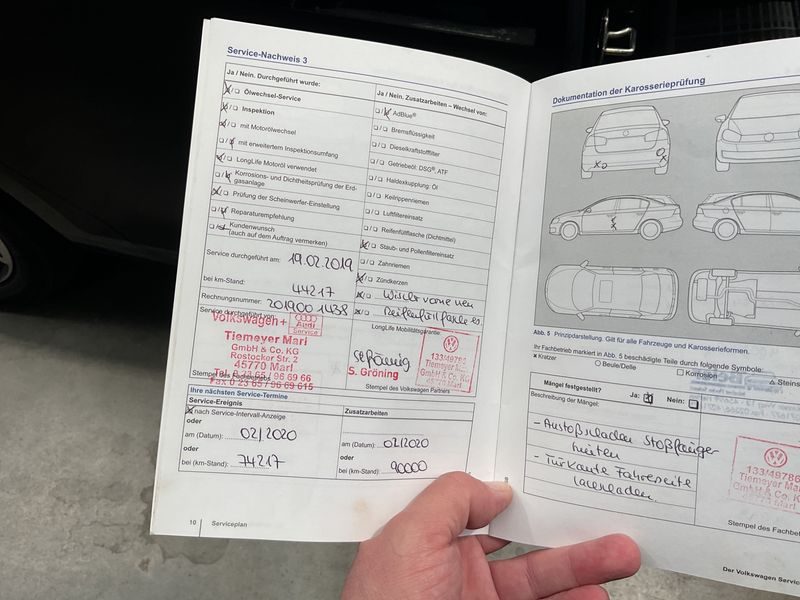 Service-Nachweis 3
Ja / Nein. Durchgeführt wurde:
Ölwechsel-Service
Inspektion
mit Motorölwechsel
mit erweitertem Inspektionsumfang
LongLife Motoröl verwendet
Korrosions- und Dichtheitsprüfung der Erd-
gasanlage
Prüfung der Scheinwerfer-Einstellung
Reparaturempfehlung
Kundenwunsch
(auch auf dem Auftrag vermerken)
Service durchgeführt am: 19.02.2019
bei km-Stand: 44217
Rechnungsnummer: 201900 1438
Service durchgeführt von:
Volkswagen + Audi
Service
Tiemeyer Marl
GmbH & Co. KG
Rostocker Str. 2
45770 Marl
Tel. 0 23 65 / 96 69 66
Fax 0 23 65 / 96 69 615
Stempel des
Ja / Nein. Zusatzarbeiten – Wechsel von:
AdBlue®
Bremsflüssigkeit
Dieselkraftstofffilter
Getriebeöl: DSG®, ATF
Haldexkupplung: Öl
Keilrippenriemen
Luftfiltereinsatz
Reifenfüllflasche (Dichtmittel)
Staub- und Pollenfiltereinsatz
Zahnriemen
Zündkerzen
Wischer vorne neu
LongLife Mobilitätsgarantie
S. Gröning
133/49786
Tiemeyer Marl
GmbH & Co. KG
45770 Marl
Stempel des Volkswagen Partners
Ihre nächsten Service-Termine
Service-Ereignis
nach Service-Intervall-Anzeige
oder
am (Datum): 02/2020
oder
bei (km-Stand): 74217
Zusatzarbeiten
am (Datum): 02/2020
oder
bei (km-Stand): 90000
10 Serviceplan
Dokumentation der Karosserieprüfung
Abb. 5 Prinzipdarstellung. Gilt für alle Fahrzeuge und Karosserieformen.
Ihr Fachbetrieb markiert in Abb. 5 beschädigte Teile durch folgende Symbole:
x Kratzer
Beule/Delle
Korrosion
Steins
Mängel festgestellt? Ja: Nein:
Beschreibung der Mängel:
- Anstoßschaden Stoßfänger
hinten
- Türkante Fahrerseite
Lackschaden
133/49786
Tiemeyer Mar
GmbH & Co. K
Marl
Stempel des Fachbet
Der Volkswagen Servic